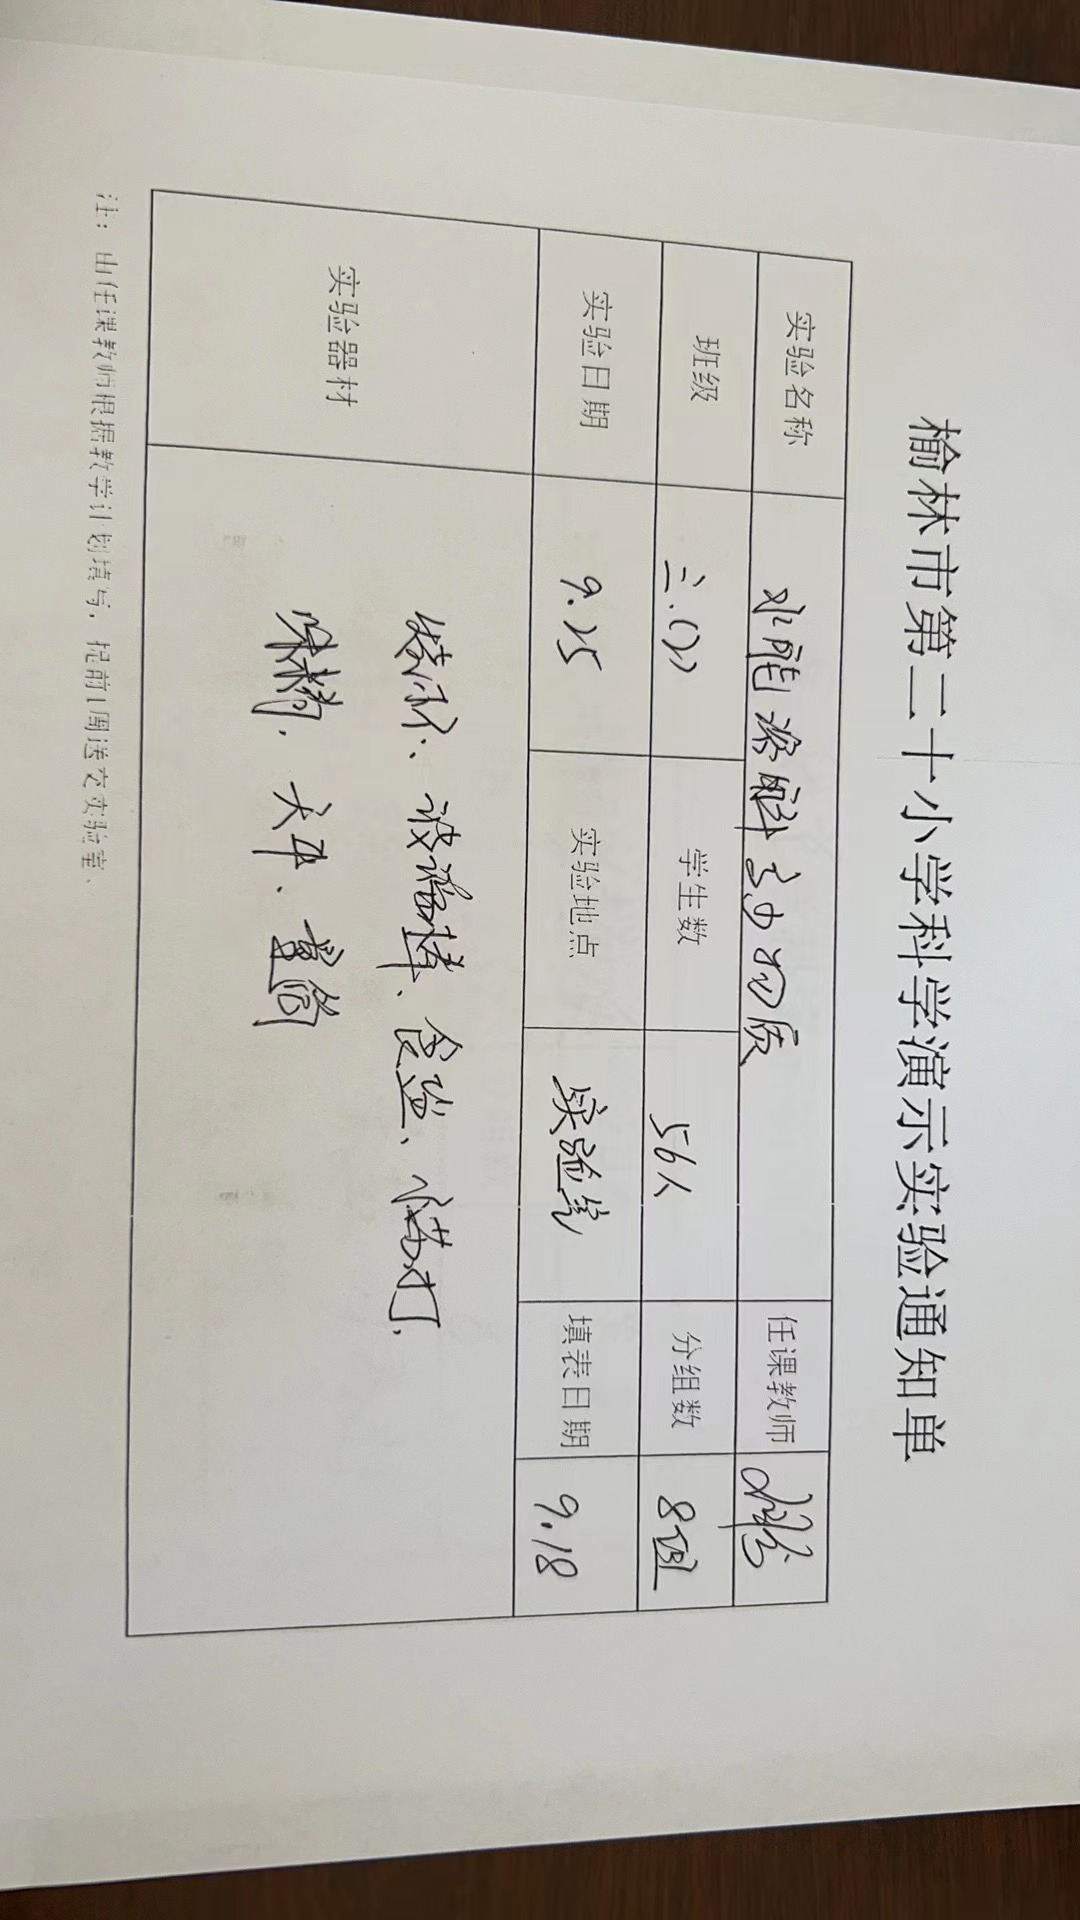 榆林市第二十小学科学演示实验通知单
实验名称 水能溶解多少物质 任课教师
班级 三.(2) 学生数 56人 分组数 8组
实验日期 9.25 实验地点 实验室 填表日期 9.18
实验器材
烧杯、玻璃棒、食盐、
味精、天平、量筒
注：由任课教师根据教学计划填写，提前1周送交实验室。